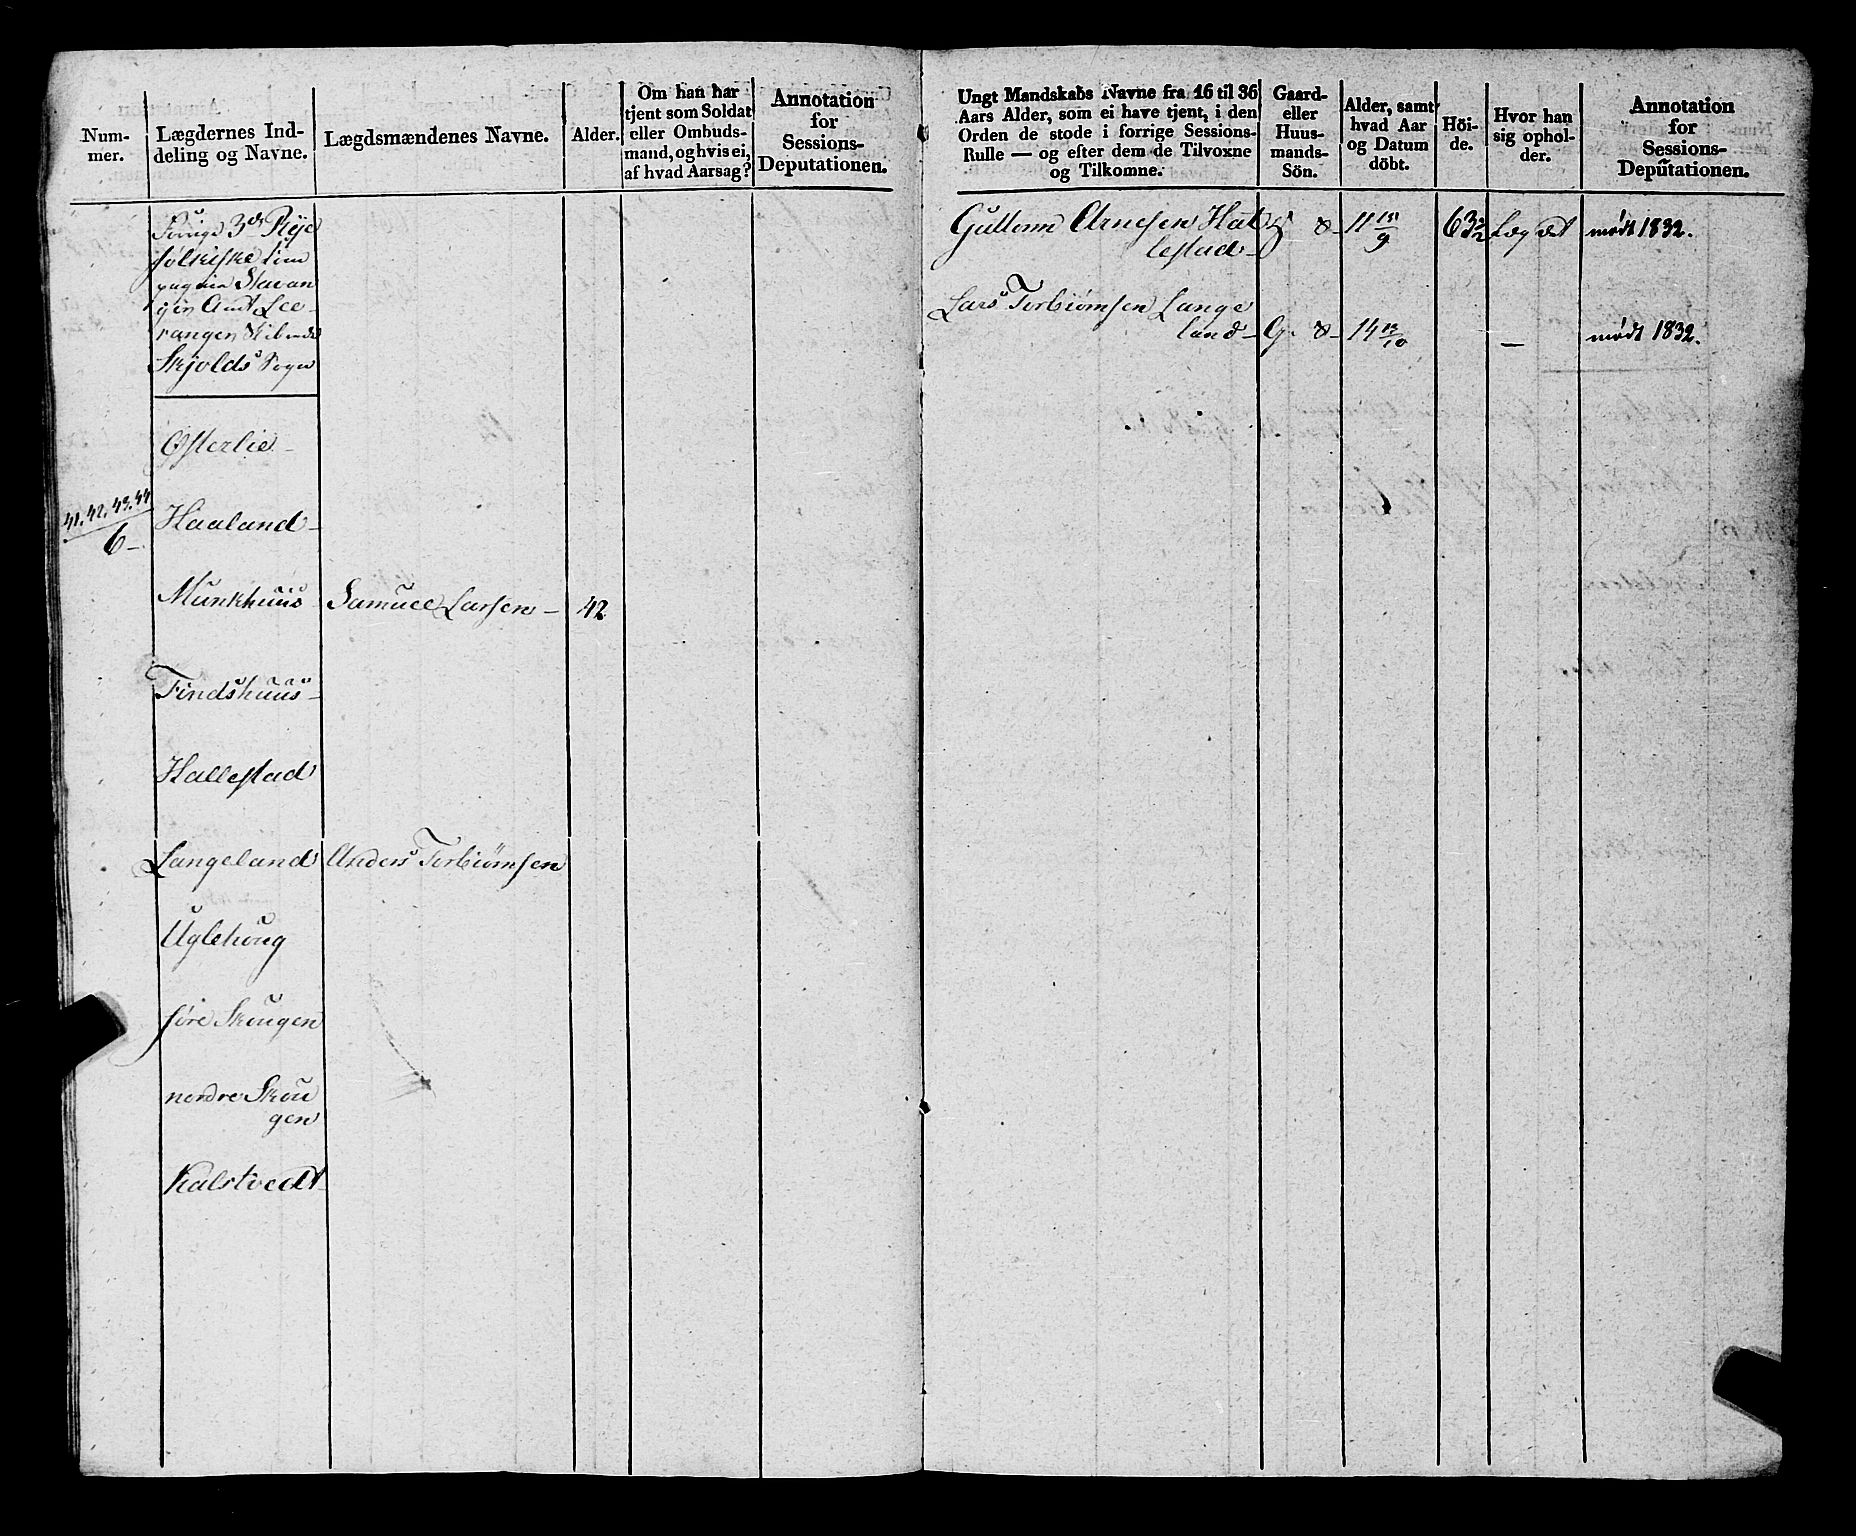 Num-
mer.
Lægdernes Ind-
deling og Navne.
Lægdsmændenes Navne.
Alder.
Om han har
tjent som Soldat
eller Ombuds-
mand, og hvis ei,
af hvad Aarsag?
Annotation
for
Sessions-
Deputationen.
3de Rye
folkiske Com
pagnie Stavan
ger Amt
Skibrede
Skjolds Sogn
Østerlie
41. 42. 43. 44
6
Haaland
Munkhuus
Samuel Larsen
42
Findshuus
Hallestad
Langeland
Anders Torbiørnsen
Uglehoug
søre Skougen
nordre Skou
gen
Kalstvedt
Ungt Mandskabs Navne fra 16 til 36
Aars Alder, som ei have tjent, i den
Orden de stode i forrige Sessions-
Rulle — og efter dem de Tilvoxne
og Tilkomne.
Gaard-
eller
Huus-
mands-
Sön.
Alder, samt
hvad Aar
og Datum
döbt.
Höi-
de.
Hvor han
sig ophol-
der.
Annotation
for
Sessions-
Deputationen.
Guttorm Arnesen Hal
lestad
11 15/9
63 3/2
Lægdet
mødt 1832.
Lars Torbiørnsen Lange
land
G.
14
—
mødt 1832.